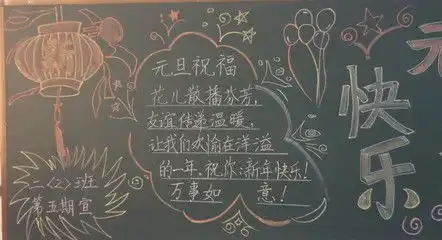 元旦祝福
花儿散播芬芳,
友谊传递温暖,
让我们欢愉在洋溢
的一年.祝你:新年快乐!
万事如意!
二〈2〉班
第五期宣
元
快乐